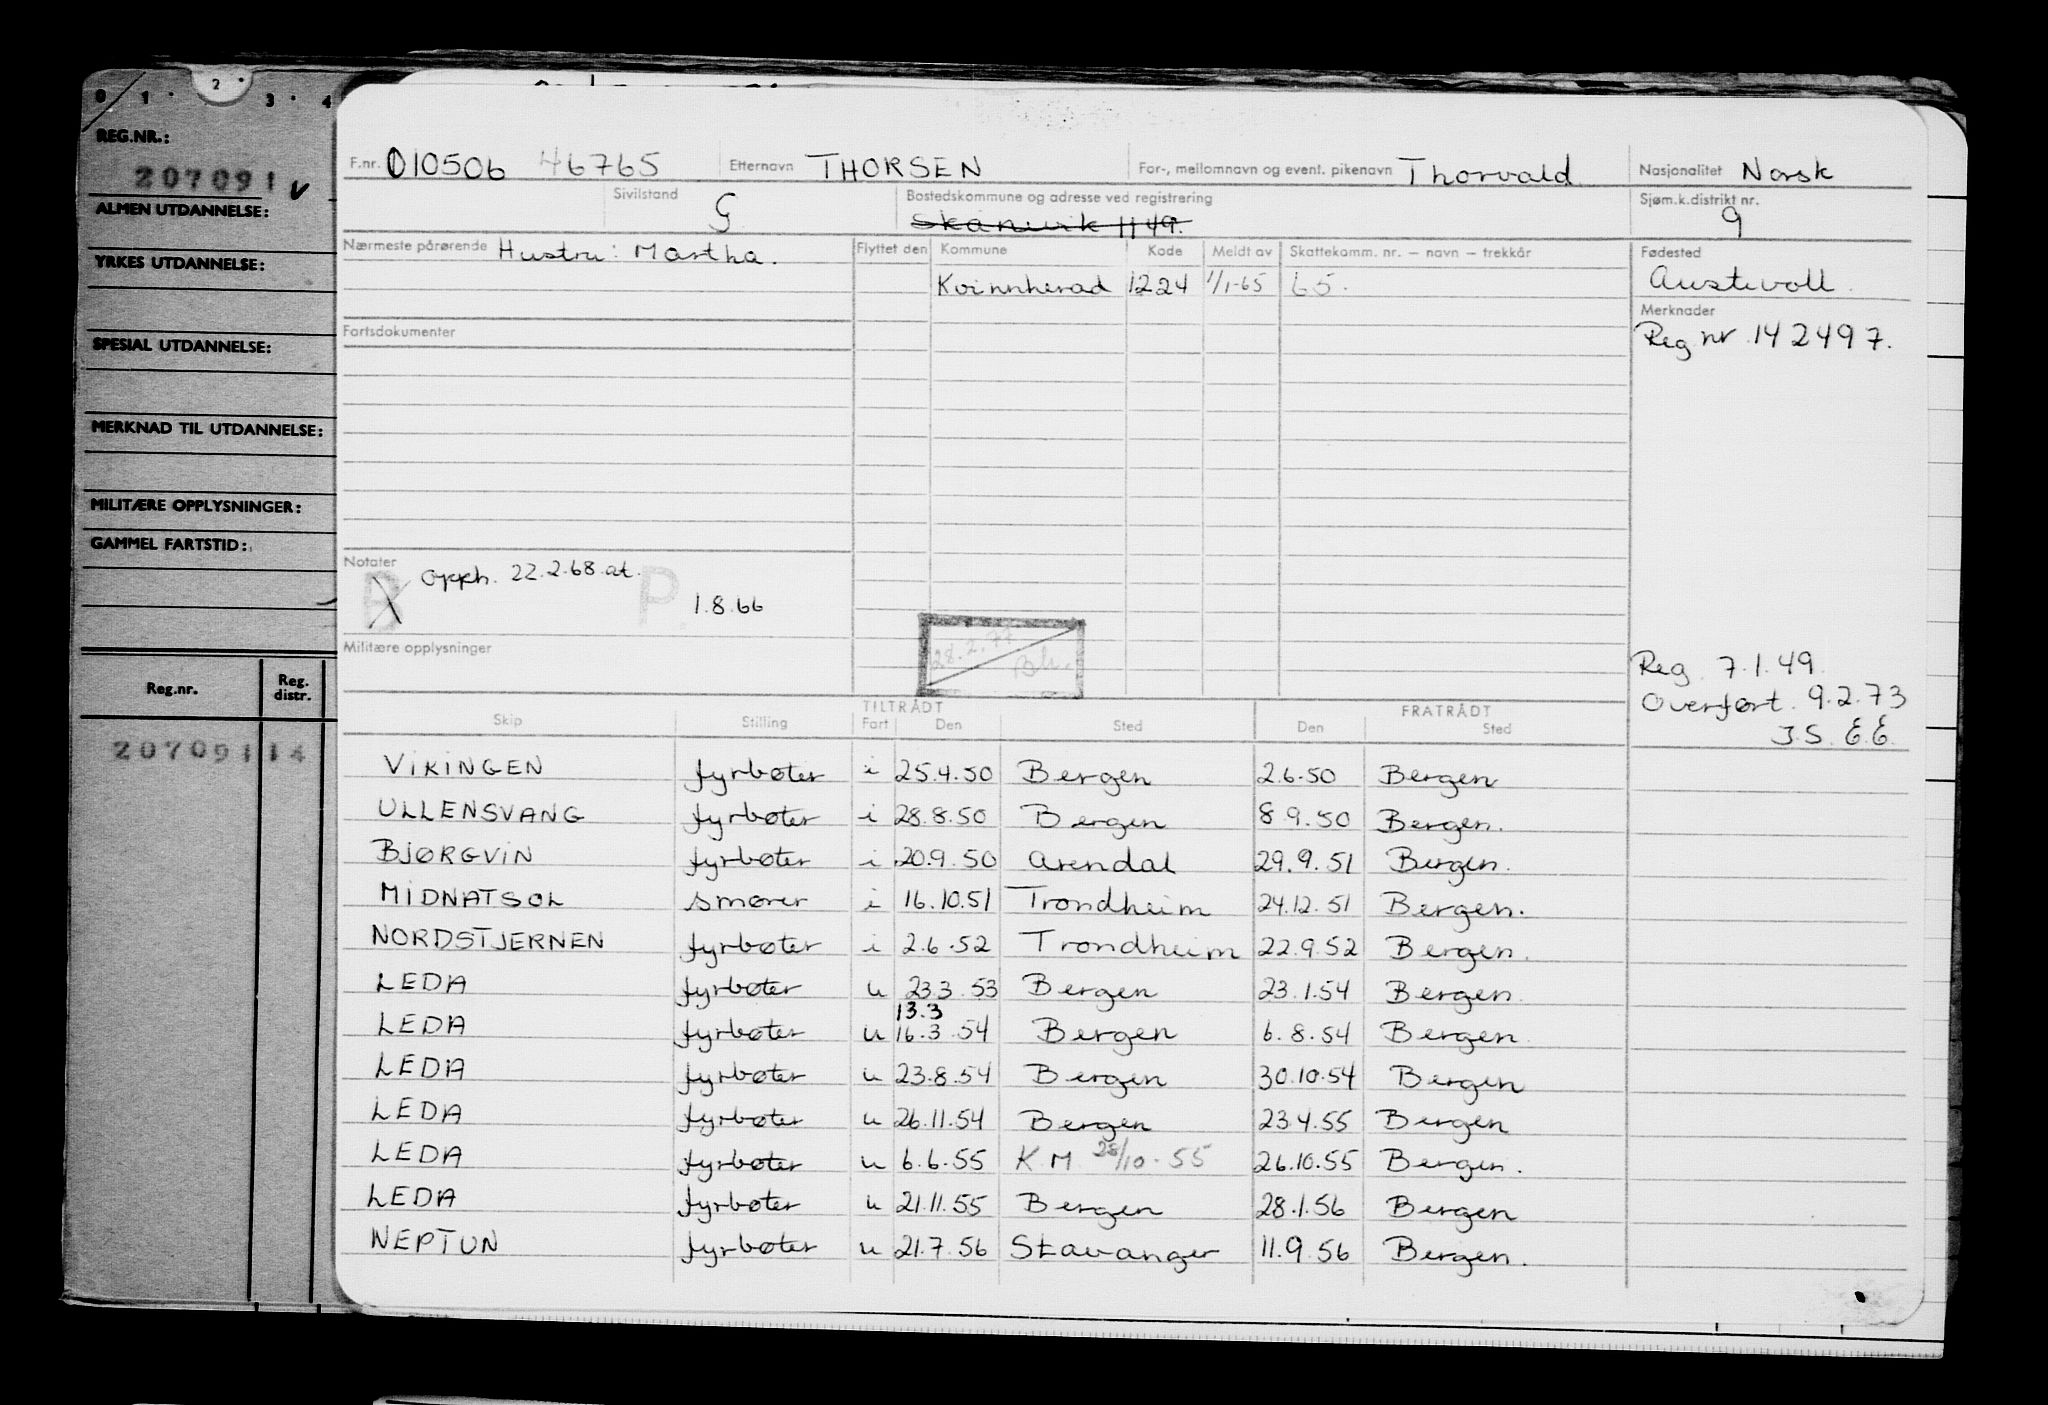 0 1 2 3 4
REG.NR.:
207091 v
ALMEN UTDANNELSE:
YRKES UTDANNELSE:
SPESIAL UTDANNELSE:
MERKNAD TIL UTDANNELSE:
MILITÆRE OPPLYSNINGER:
GAMMEL FARTSTID:
Reg.nr. Reg. distr.
207091 14
F.nr. 010506 46765 Etternavn THORSEN For-, mellomnavn og event. pikenavn Thorvald Nasjonalitet Norsk
Sivilstand G Bostedskommune og adresse ved registrering Skånevik 1149. Sjøm.k.distrikt nr. 9
Nærmeste pårørende Hustru: Martha. Flyttet den Kommune Kode Meldt av Skattekomm. nr. – navn – trekkår Fødested
Kvinnherad 1224 1/1-65 65. Austevoll.
Fartsdokumenter Merknader
Reg nr 142497.
Notater
B opph. 22.2.68 at. P.
1.8.66
Militære opplysninger
28.2.77
Bh.
Reg. 7.1.49.
Overført. 9.2.73
J.S. E.E.
TILTRÅDT FRATRÅDT
Skip Stilling Fart Den Sted Den Sted
VIKINGEN fyrbøter i 25.4.50 Bergen 2.6.50 Bergen
ULLENSVANG fyrbøter i 28.8.50 Bergen 8.9.50 Bergen.
BJØRGVIN fyrbøter i 20.9.50 Arendal 29.9.51 Bergen.
MIDNATSOL smører i 16.10.51 Trondheim 24.12.51 Bergen.
NORDSTJERNEN fyrbøter i 2.6.52 Trondheim 22.9.52 Bergen.
LEDA fyrbøter u 23.3.53 Bergen 23.1.54 Bergen.
13.3
LEDA fyrbøter u 16.3.54 Bergen 6.8.54 Bergen.
LEDA fyrbøter u 23.8.54 Bergen 30.10.54 Bergen
LEDA fyrbøter u 26.11.54 Bergen 23.4.55 Bergen
LEDA fyrbøter u 6.6.55 K.M. 25/10.55 26.10.55 Bergen.
LEDA fyrbøter u 21.11.55 Bergen 28.1.56 Bergen
NEPTUN fyrbøter u 21.7.56 Stavanger 11.9.56 Bergen.